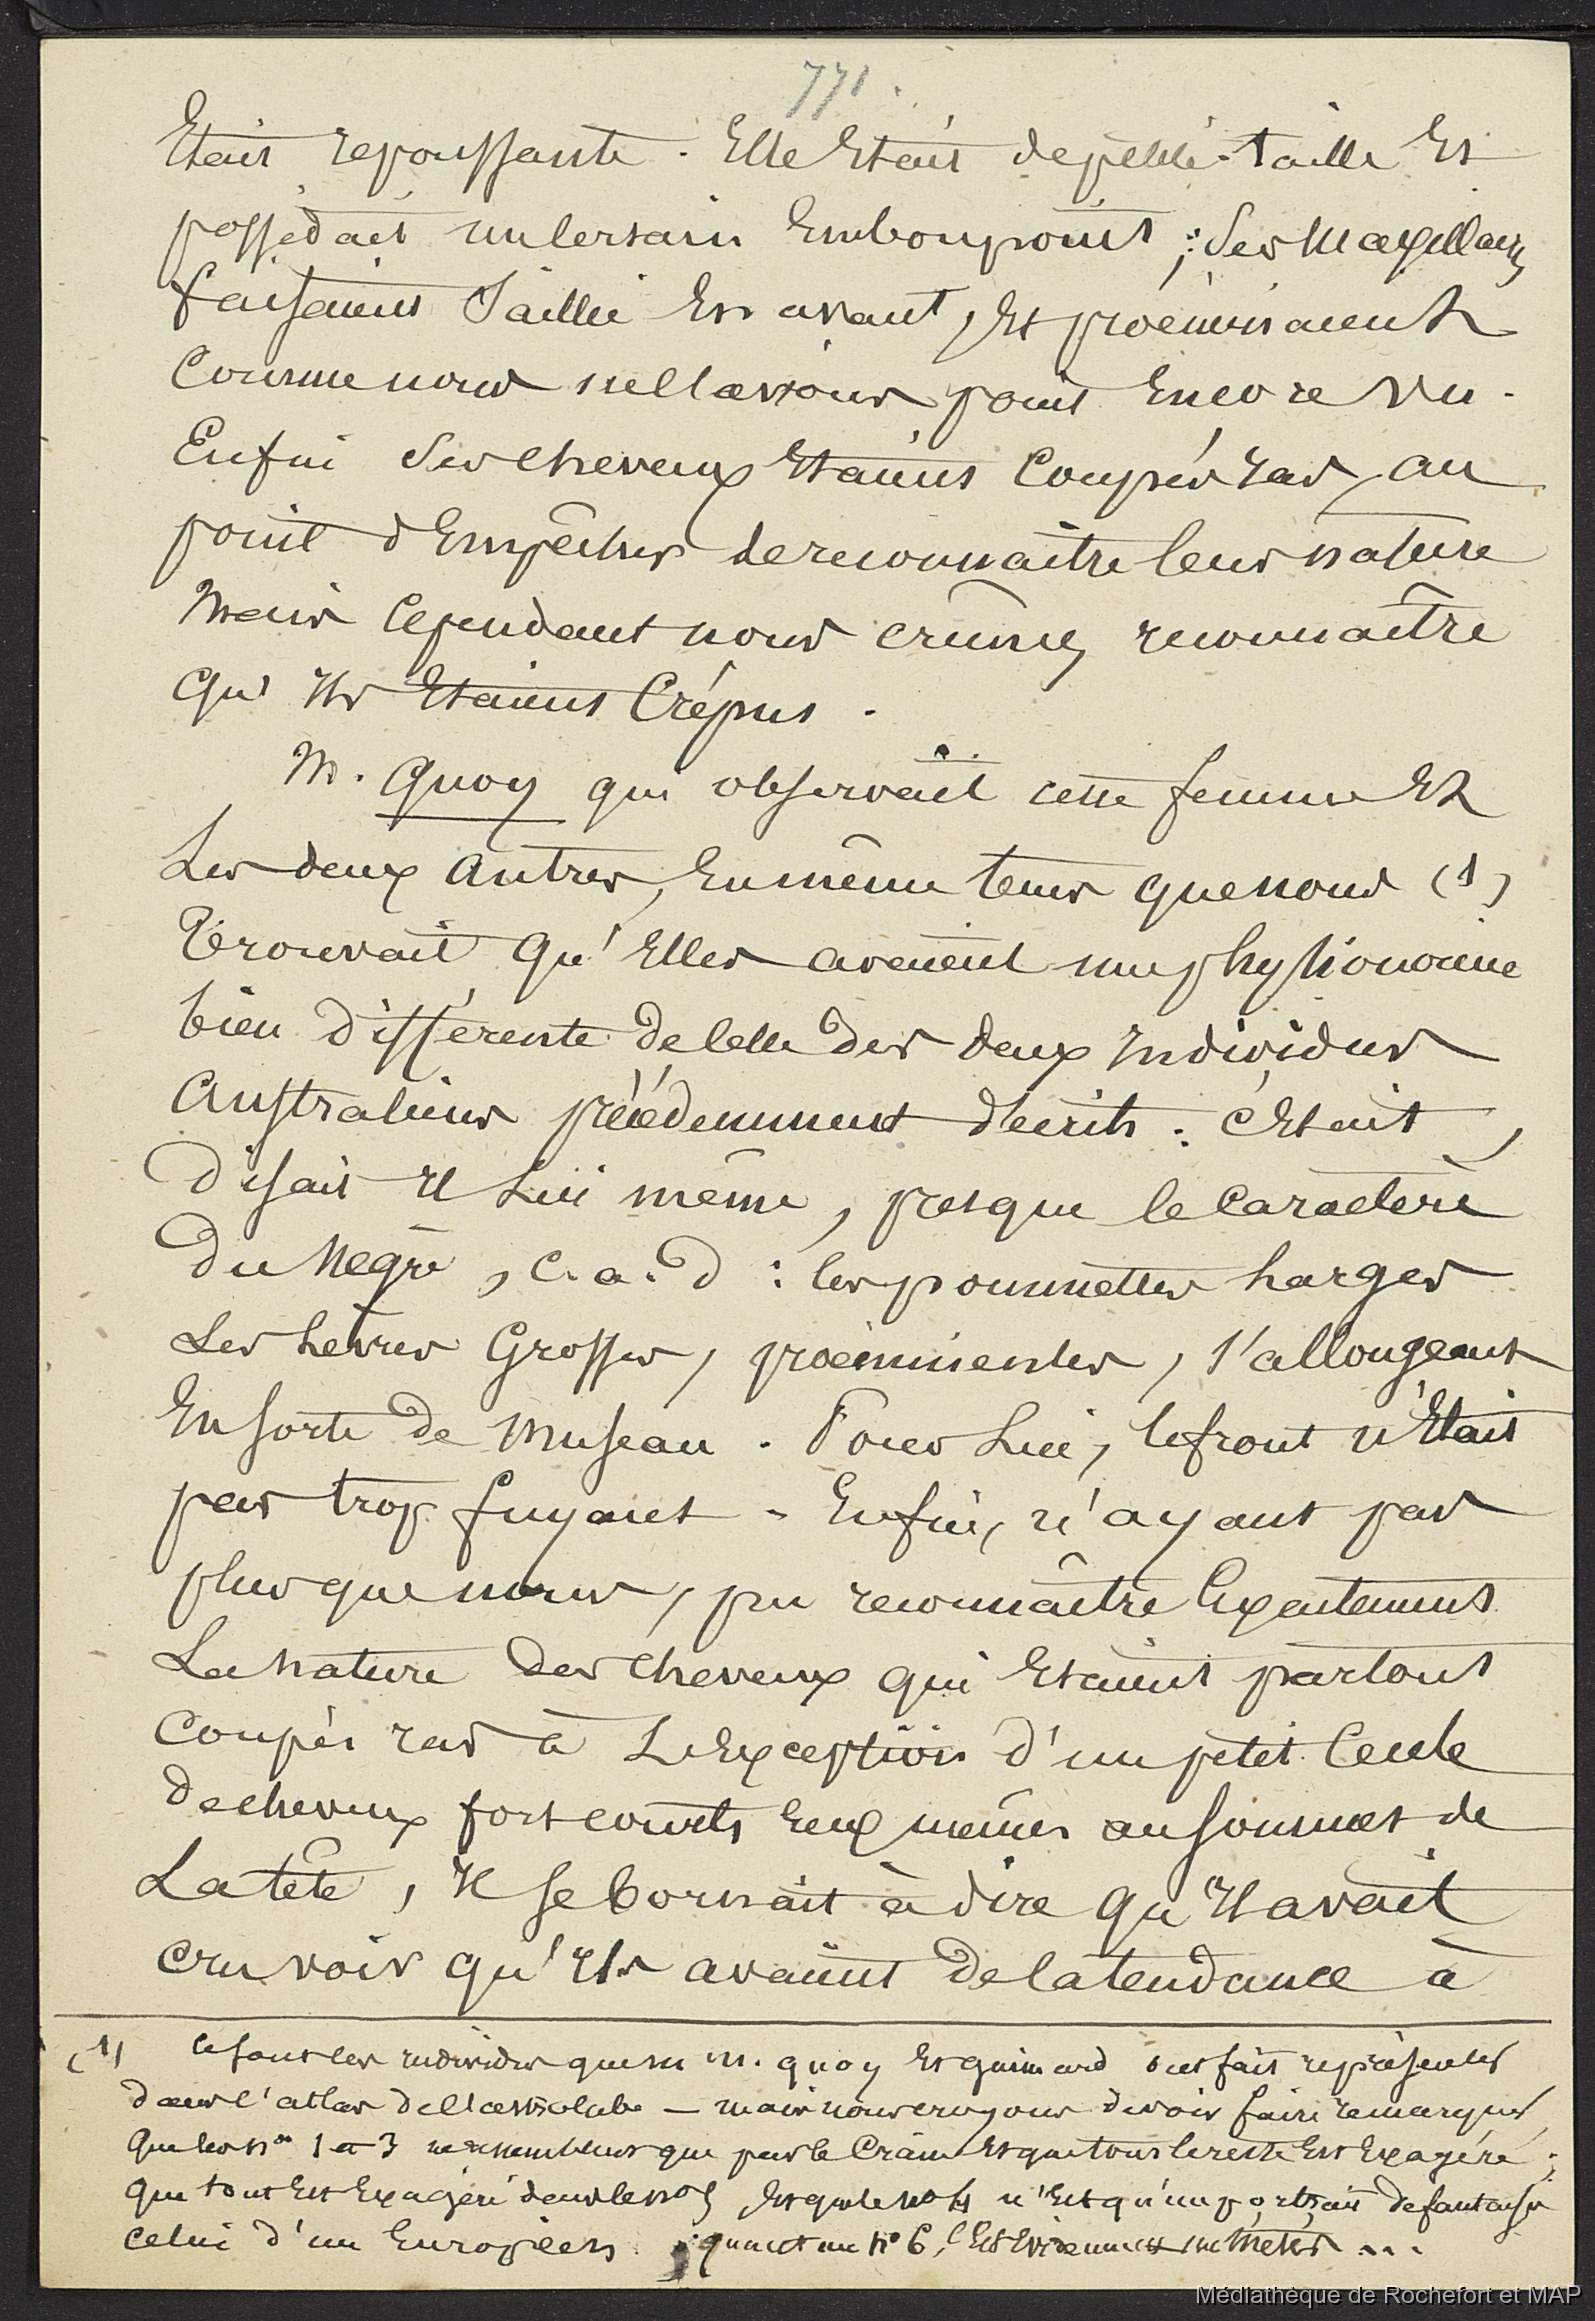 771.
Etait repoussante. Elle Etait de petite taille Et
possédait un certain Embonpoint; Ses Maxillaires
faisaient Saillie En avant, Et proéminaient
Comme nous ne l'avions point Encore vu.
Enfin Ses cheveux Etaient Coupés ras, au
point d'Empêcher de reconnaître leur nature
Mais Cependant nous crûmes reconnaître
qu'Ils Etaient Crépus.
M. Quoy qui observait cette femme Et
Les deux Autres, En même tems que nous (1)
Trouvait qu'Elles avaient une physionomie
bien différente de celle des deux Individus
Australiens précédemment décrits : c'Etait,
disait Il Lui même, presque le Caractère
du Nègre, c.a.d : les pommettes Larges
Les Lèvres Grosses, proéminentes, s'allongeant
En sorte de Museau. Pour Lui, le front n'Etait
pas trop fuyant. Enfin, n'ayant pas
plus que nous, pu reconnaître Exactement
La nature des cheveux qui Etaient partout
coupés ras à L'Exception d'un petit Cercle
de cheveux fort courts Eux mêmes au sommet de
La tête, Il se bornait à dire qu'Il avait
cru voir qu'Ils avaient de la tendance à
(1) Ce sont les individus que M. M. Quoy Et Gaimard ont fait représenter
dans l'atlas de l'astrolabe — mais nous croyons devoir faire remarquer
que les nos 1 et 3 ne ressemblent que par le Crâne Et que tout le reste Est Exagéré;
que tout Est Exagéré dans le no 5 Et que le no 4 n'Est qu'un portrait de fantaisie
celui d'un Européen. quant au no 6, c'Est Evidemment un Métis...
Médiathèque de Rochefort et MAP